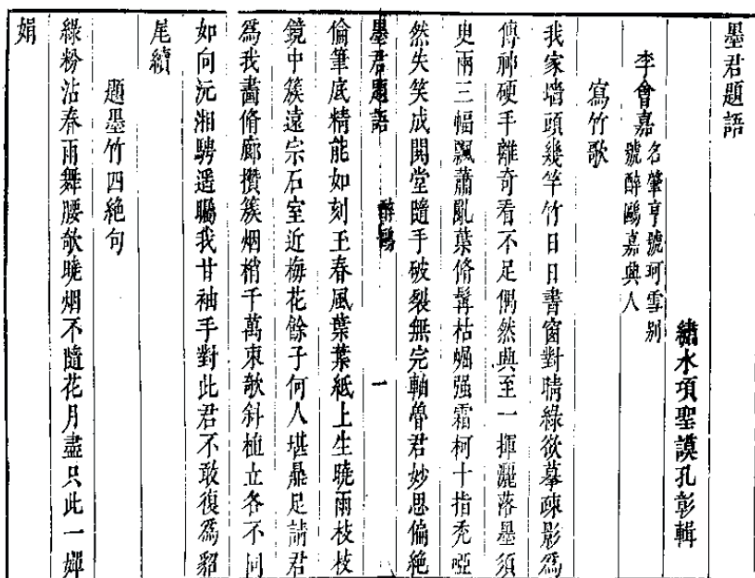 墨君題語
繡水項聖謨孔彰輯
李會嘉名肇亨號珂雪别
號醉鷗嘉興人
寫竹歌
我家墙頭幾竿竹日日書窗對晴綠欲摹疎影爲
傳神硬手離奇看不足偶然興至一揮灑落墨須
臾兩三幅飄蕭亂葉脩髯枯崛强霜柯十指禿啞
然失笑成閧堂隨手破裂無完軸魯君妙思偏絶
墨君題語 醉鷗 一
倫筆底精能如刻玉春風葉葉紙上生曉雨枝枝
鏡中簇遠宗石室近梅花餘子何人堪鼎足請君
爲我畵脩廊攢簇烟梢千萬束欹斜植立各不同
如向沅湘騁遥矚我甘袖手對此君不敢復爲貂
尾續
題墨竹四絶句
綠粉沾春雨舞腰欹曉烟不隨花月盡只此一嬋
娟